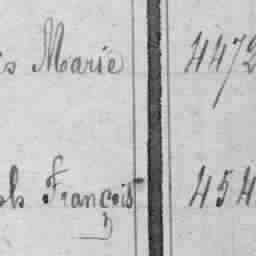 is Marie 4472
ph François 454